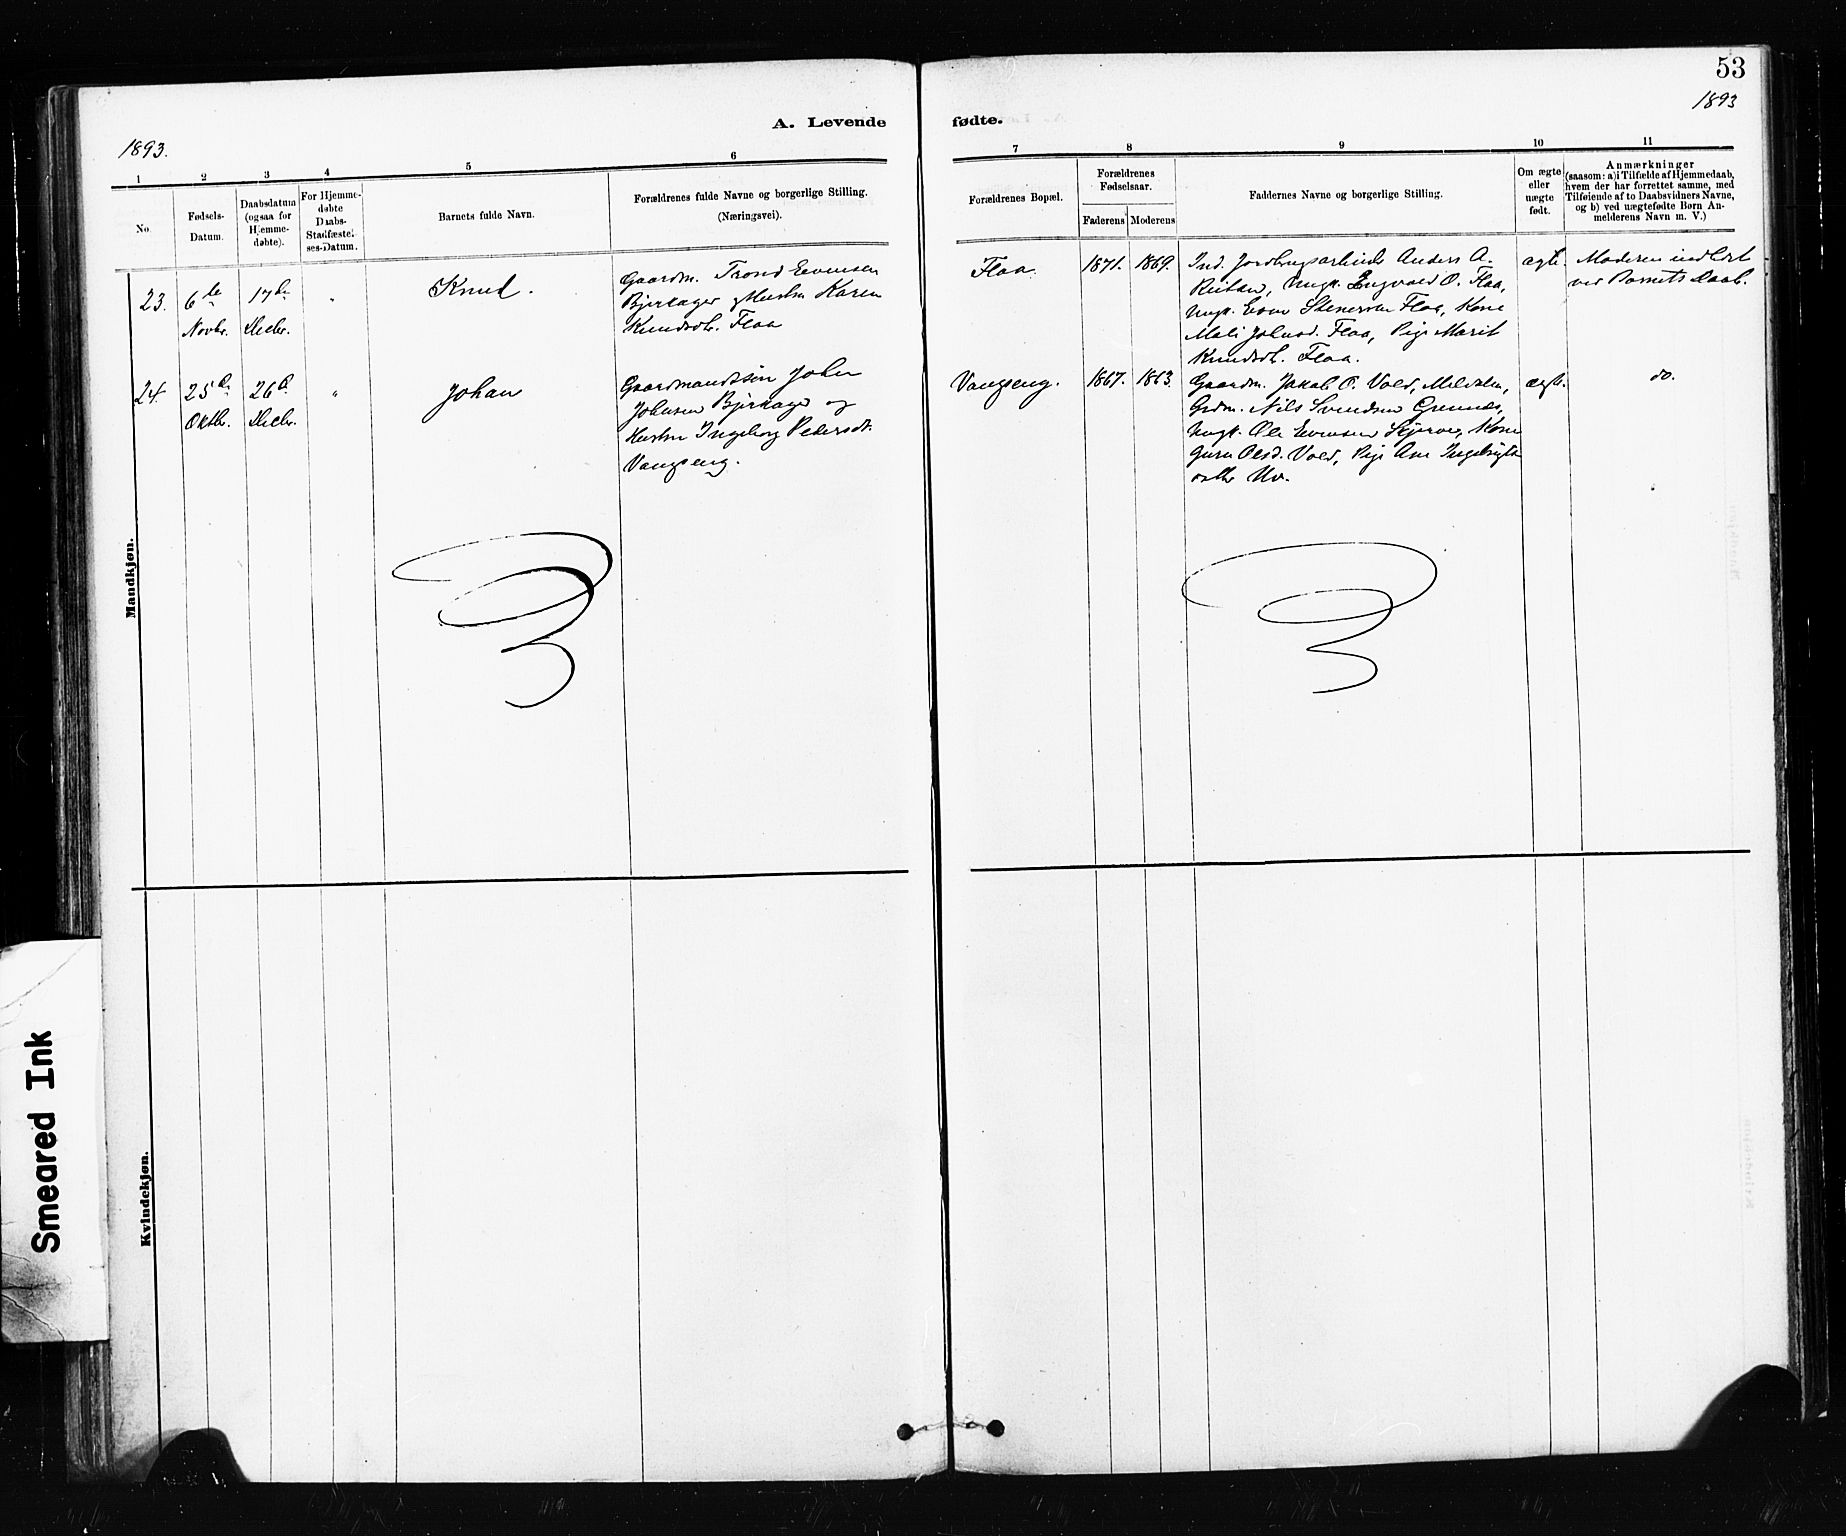 53
1893
1893.
A. Levende
fødte.
1 2 3 4 5 6
7 8 9 10 11
No.
Fødsels-
Datum.
Daabsdatum
(ogsaa for
Hjemme-
døbte).
For Hjemme-
døbte
Daabs-
Stadfæstel-
ses-Datum.
Barnets fulde Navn.
Forældrenes fulde Navne og borgerlige Stilling.
(Næringsvei).
Forældrenes Bopæl.
Forældrenes
Fødselsaar.
Faderens Moderens
Faddernes Navne og borgerlige Stilling.
Om ægte
eller
uægte
født.
Anmærkninger
(saasom: a) i Tilfælde af Hjemmedaab,
hvem der har forrettet samme, med
Tilføiende af to Daabsvidners Navne,
og b) ved uægtefødte Børn An-
melderens Navn m. V.)
Mandkjøn.
23.
6te
Novbr.
17de
Decbr.
"
Knud.
Gaardm. Trond Evensen
Bjerkager og Hustru Karen
Knudsdtr. Flaa
Flaa.
1871. 1869.
Ind. Jordbrugsarbeid. Anders A.
Reitan, Ungk. Engvald O. Flaa,
Ungk. Even Stenersen Flaa, Kone
Mali Johnsd. Flaa, Pige Marit
Knudsdt. Flaa.
ægte.
Moderen indledet
ved Barnets Daab.
24.
25de
Oktbr.
26d.
Decbr.
"
Johan
Gaardmandssøn John
Johnsen Bjerkager og
Hustru Ingeborg Pedersdt.
Vangseng.
Vangseng.
1867. 1863.
Gaardm. Jakob O. Vold, Meldalen,
Grdm. Nils Svendsen Grennes,
Ungk. Ole Evensen Skjerve, Kone
Guru Olsd. Vold, Pige Ane Ingebrigts
datter Uv.
ægte.
do.
Kvindekjøn.
Smeared Ink